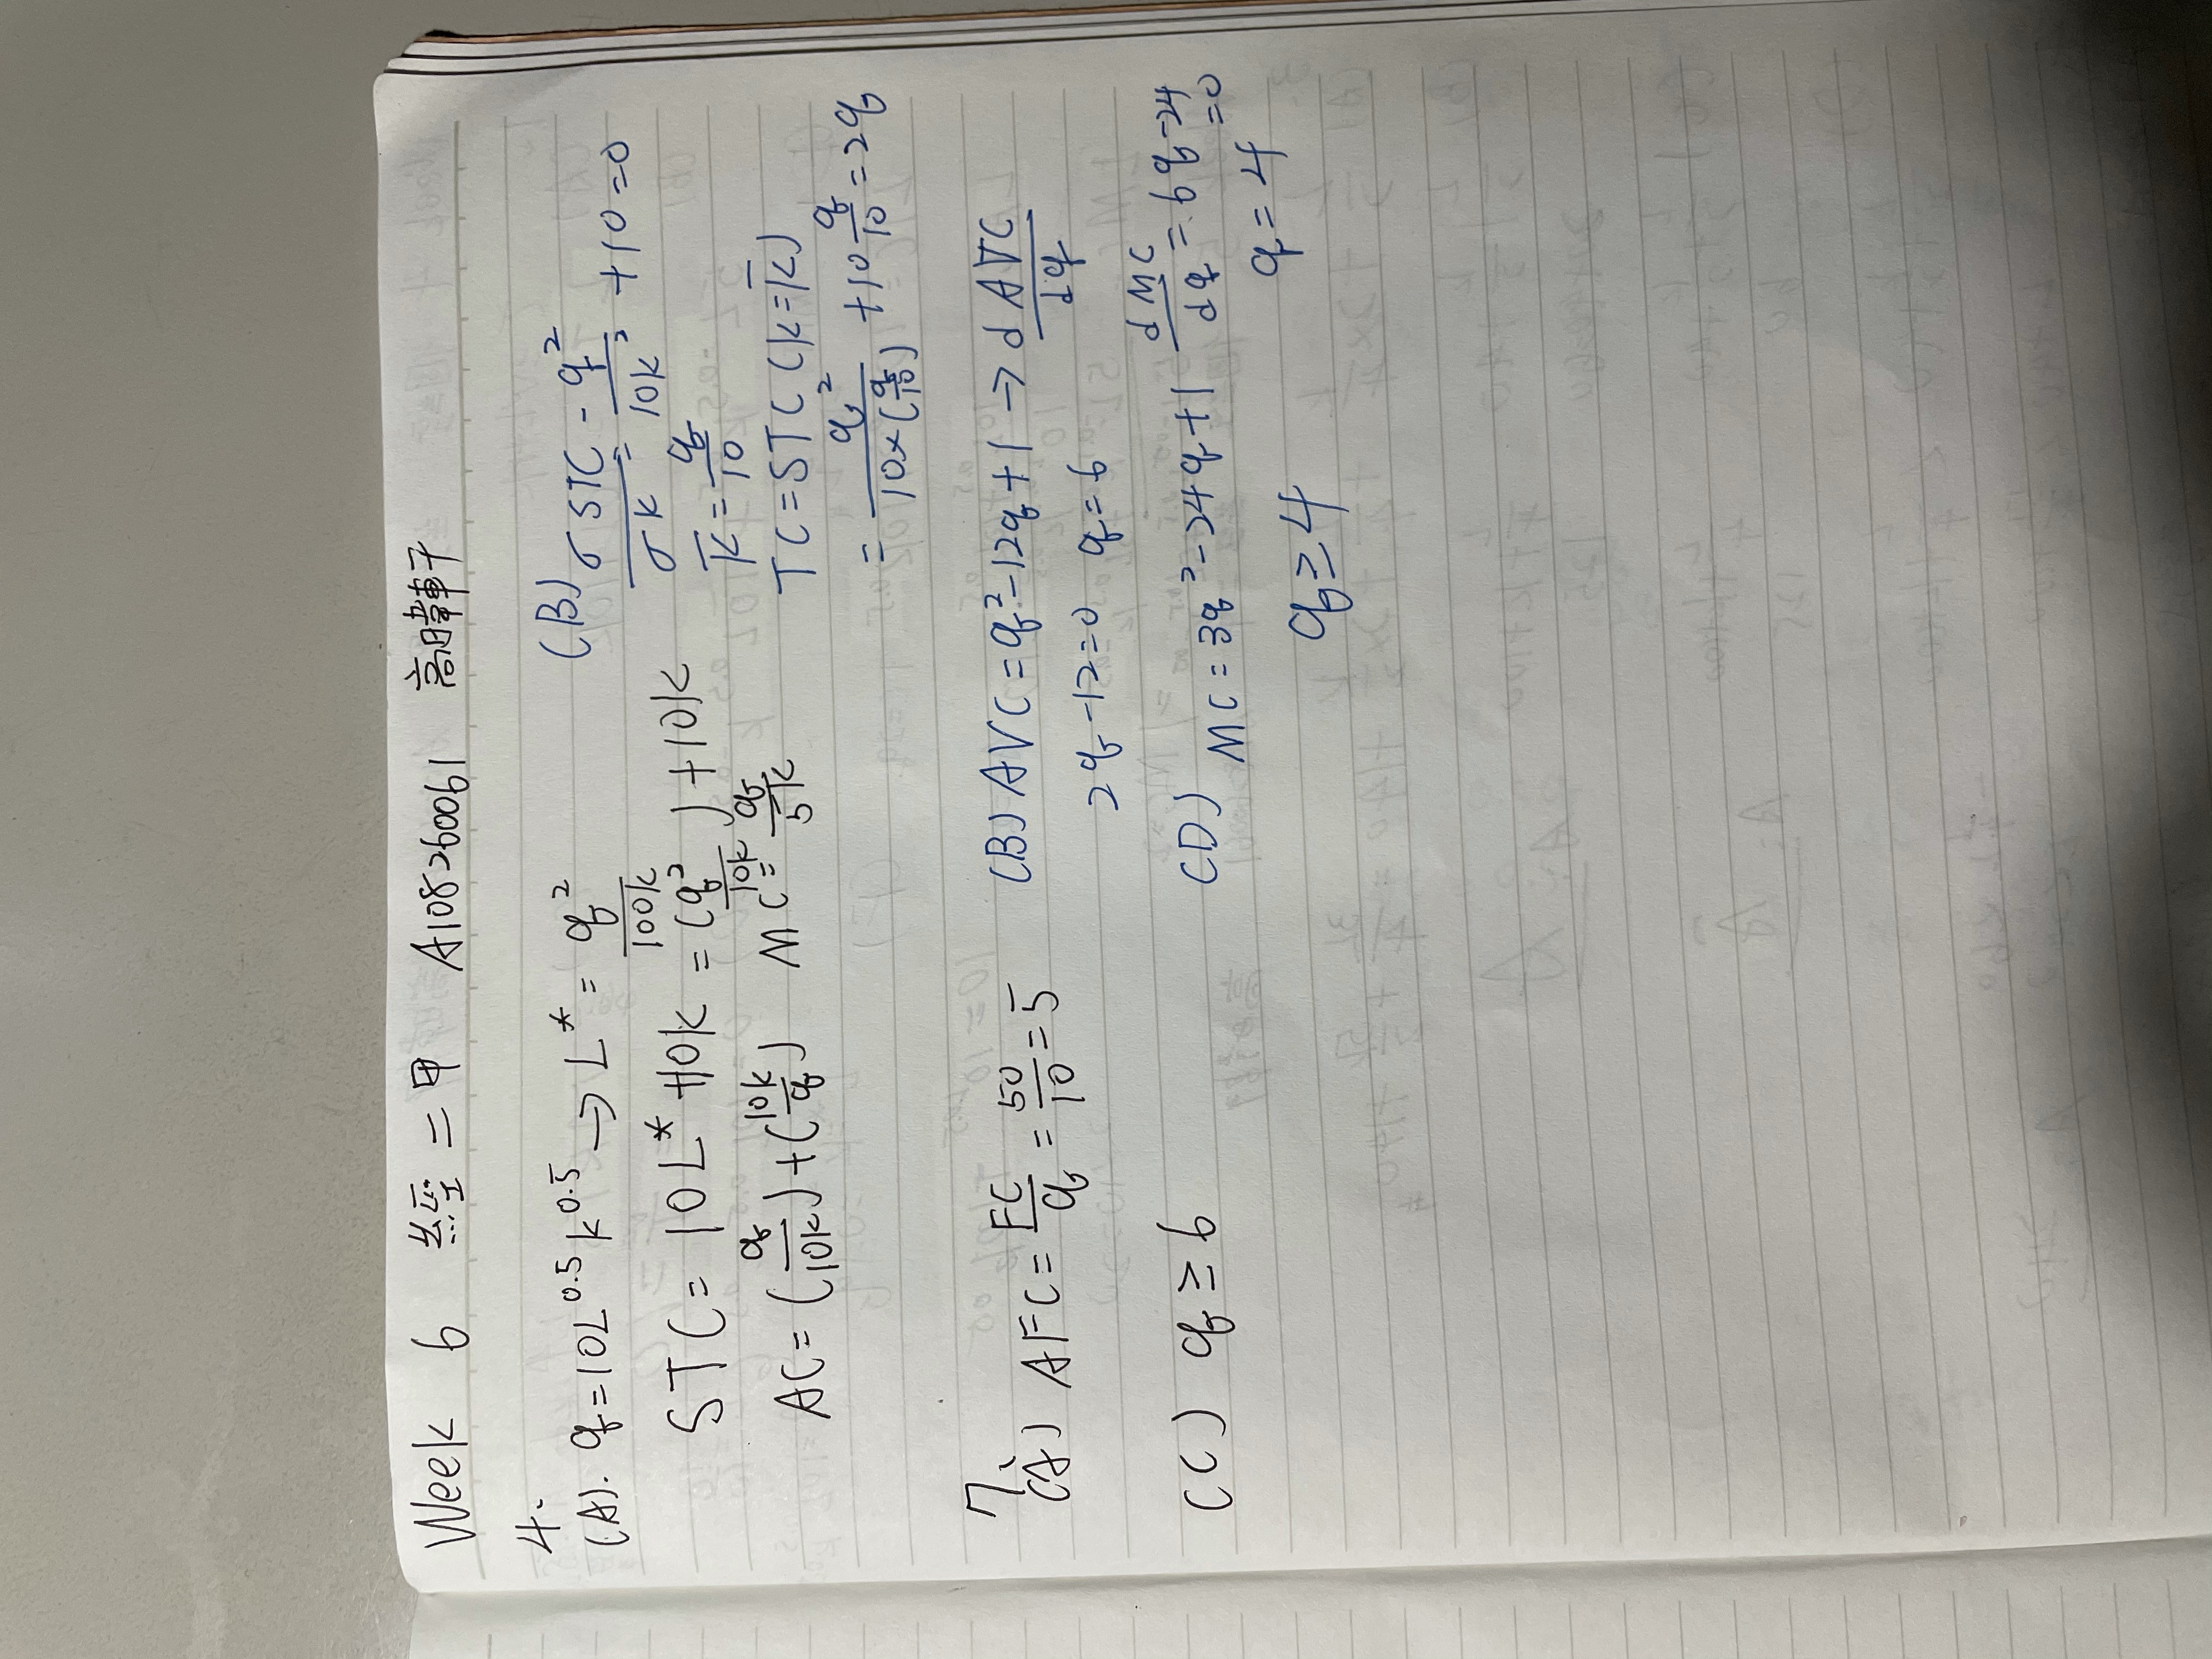 Week 6 經二甲 A108260061 高暐軒
4.
(A). q=10L^0.5 k^0.5 → L* = q²/100k
STC = 10L* +10k = (q²/10k) + 10k
AC = (q/10k) + (10k/q) MC = q/5k
(B) σSTC/σk = -q²/10k² +10=0
k̄ = q/10
TC = STC (k=k̄)
= q²/10×(q/10) + 10 q/10 = 2q
7、
(A) AFC = FC/q = 50/10 = 5
(B) AVC = q²-12q+1 → dAVC/dq
2q-12=0 q=6
(C) q ≥ 6
(D) MC = 3q²-24q+1 dMC/dq = 6q-24
=0
q = 4
q ≥ 4